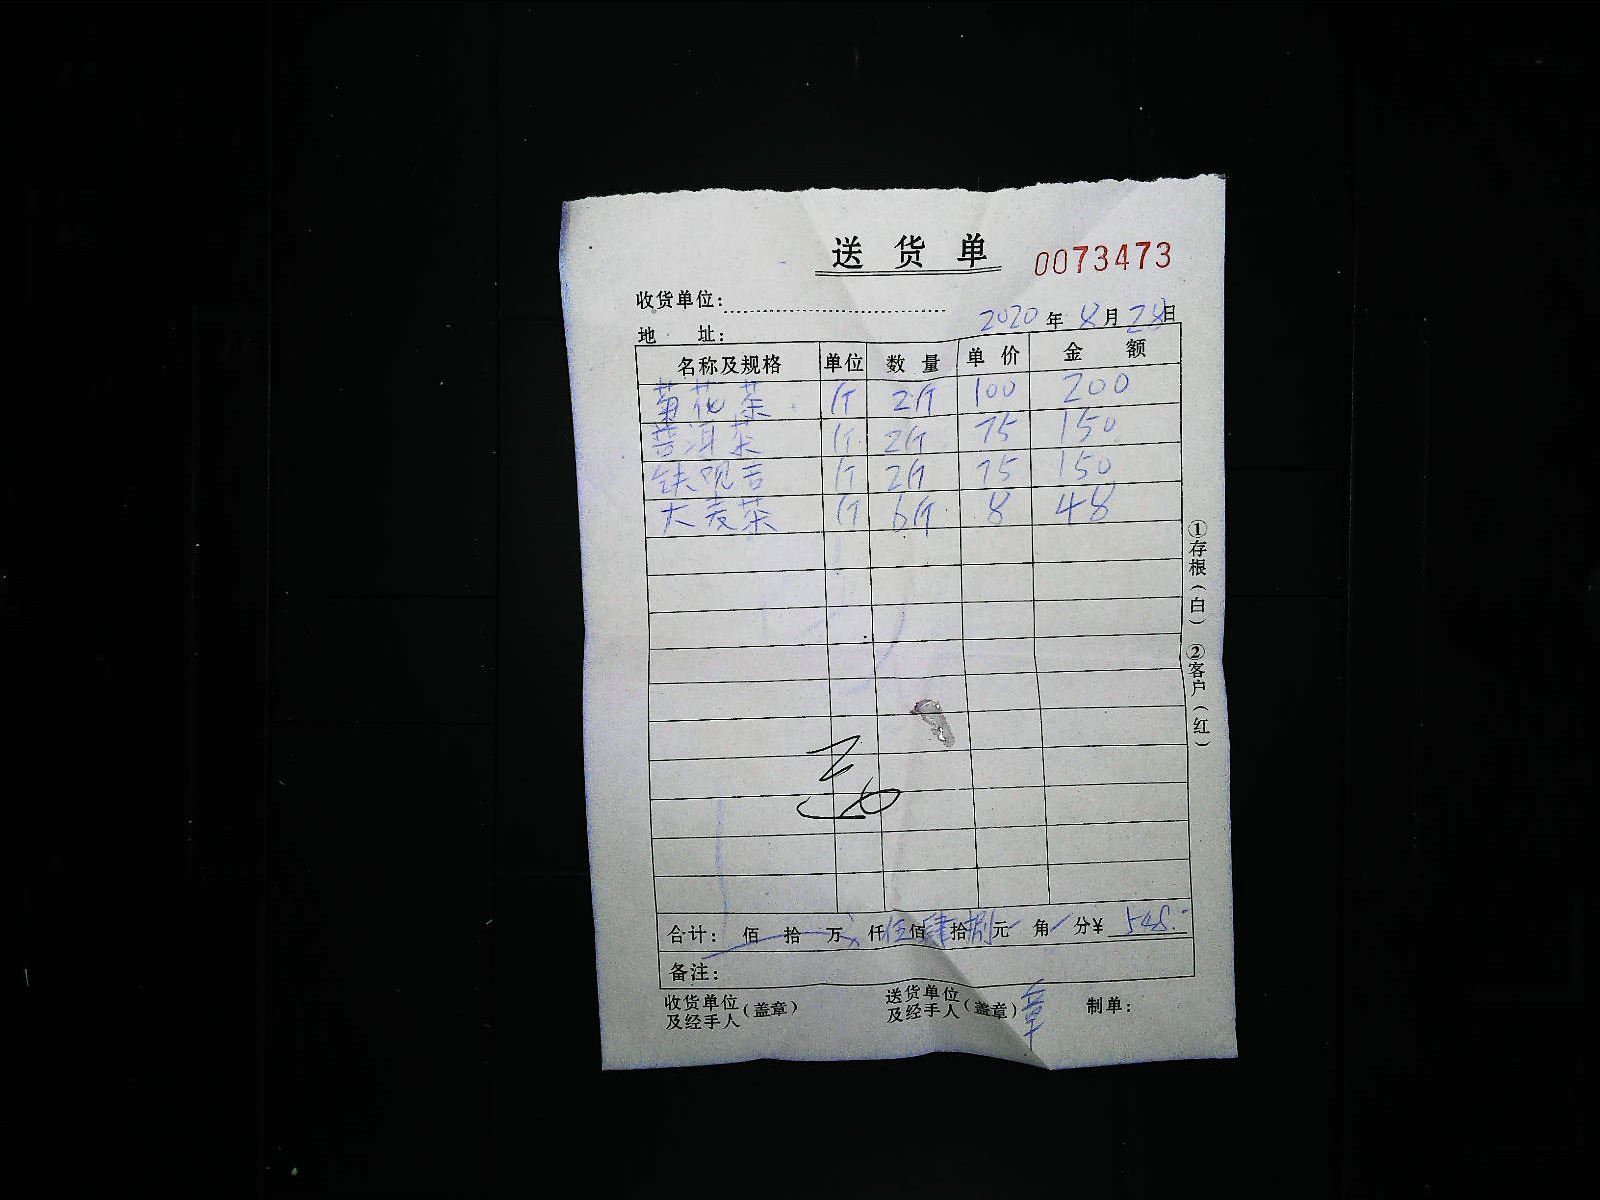 送货单 0073473
收货单位:
2020年8月28日
地 址:
名称及规格 单位 数量 单价 金额
菊花茶 斤 2斤 100 200
普洱茶 斤 2斤 75 150
铁观音 斤 2斤 75 150
大麦茶 斤 6斤 8 48
合计: 佰 拾 万 仟伍佰肆拾捌元 角 分¥ 548.-
备注:
收货单位及经手人(盖章) 送货单位及经手人(盖章)章 制单:
①存根(白) ②客户(红)